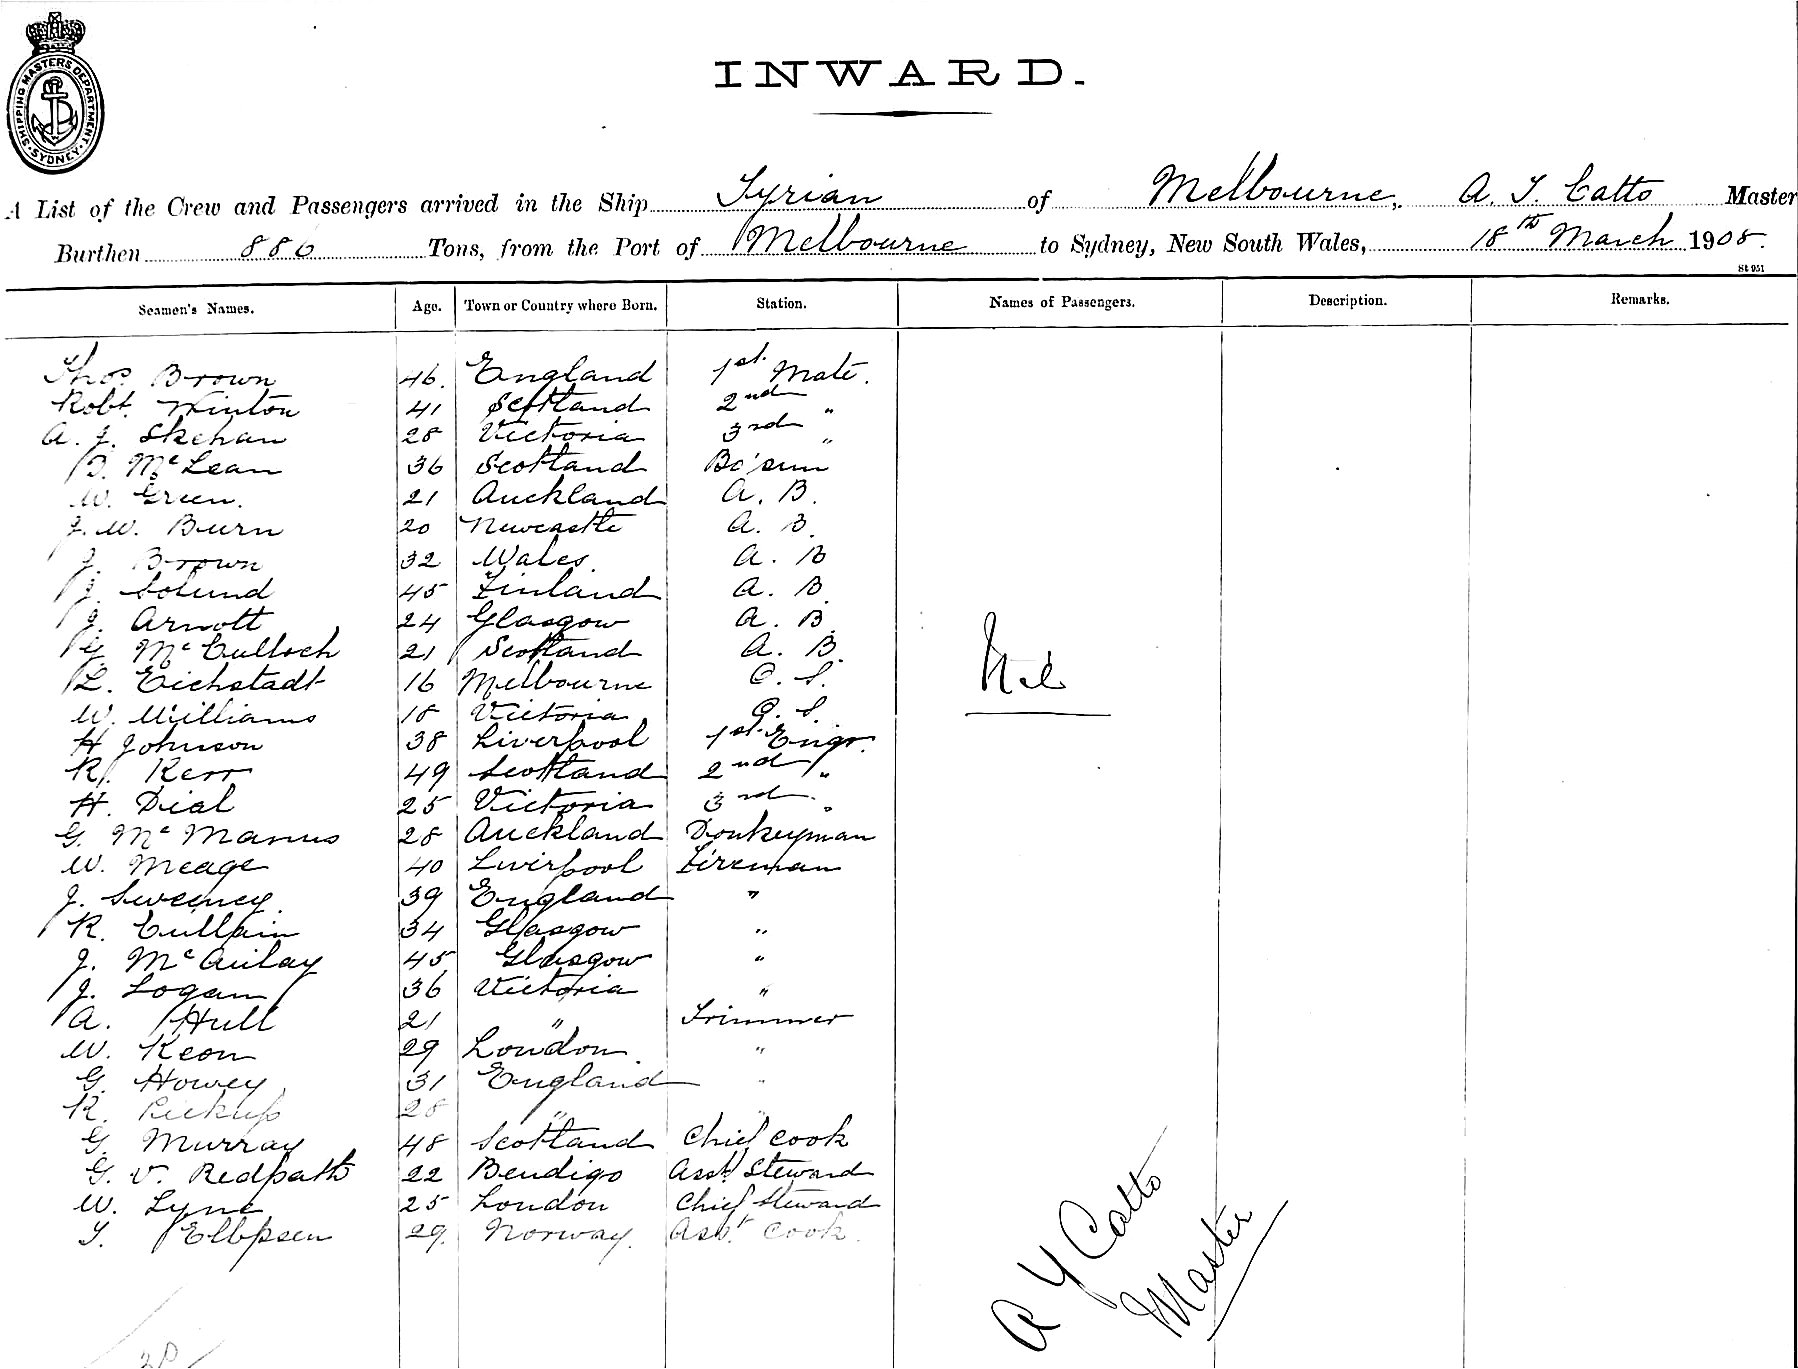 SHIPPING MASTERS DEPARTMENT. SYDNEY.
INWARD.
A List of the Crew and Passengers arrived in the Ship Tyrian of Melbourne, A. T. Catto Master
Burthen 886 Tons, from the Port of Melbourne to Sydney, New South Wales, 18th March 1908.
St 951
Seamen's Names. Age. Town or Country where Born. Station. Names of Passengers. Description. Remarks.
Thos Brown 46. England 1st Mate.
Robt. Winton 41 Scotland 2nd "
A. J. Skehan 28 Victoria 3rd "
D. McLean 36 Scotland Bo'sun
W. Green. 21 Auckland A. B.
J. W. Burn 20 Newcastle A. B.
J. Brown 32 Wales. A. B
J. Solund 45 Finland A. B.
J. Arnott 24 Glasgow A. B.
G. McCulloch 21 Scotland A. B.
L. Eichstadt 16 Melbourne O. S.
Nil
W. Williams 18 Victoria O. S.
H Johnson 38 Liverpool 1st Engr.
R. Kerr 49 Scotland 2nd "
H. Dial 25 Victoria 3rd "
G. McManus 28 Auckland Donkeyman
W. Meage 40 Liverpool Fireman
J. Sweeney. 39 England "
R. Cullain 34 Glasgow "
J. McAulay 45 Glasgow "
J. Logan 36 Victoria "
A. Hull 21 " Trimmer
W. Keon 29 London. "
G. Howey 31 England "
R. Pickup 28 " "
G. Murray 48 Scotland Chief Cook
G. V. Redpath 22 Bendigo Asst. Steward
W. Lyne 25 London Chief Steward
T. Ellopsen 29. Norway. Asst. Cook.
A Y Catto
Master